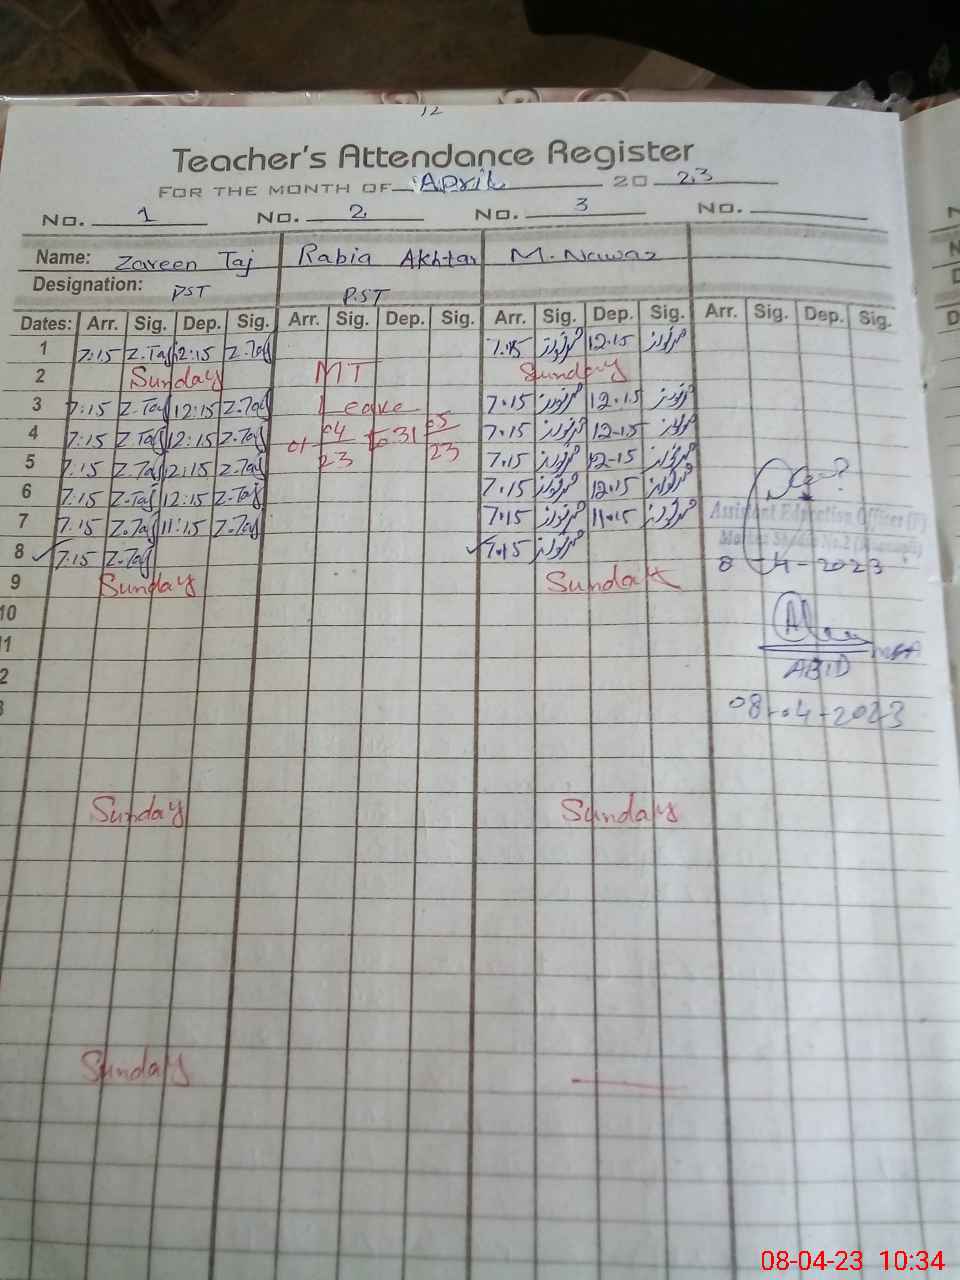 12
Teacher's Attendance Register
FOR THE MONTH OF April 20 23
No. 1 No. 2 No. 3 No.
Name: Zareen Taj Rabia Akhtar M. Nawaz
Designation: PST P.ST
Dates: Arr. Sig. Dep. Sig. Arr. Sig. Dep. Sig. Arr. Sig. Dep. Sig. Arr. Sig. Dep. Sig.
1 7:15 Z.Taj 12:15 Z.Taj 7.15 محمد نواز 12.15 محمد نواز
2 Sunday MT Sunday
3 7:15 Z-Taj 12:15 Z.Taj Leave 7.15 محمد نواز 12.15 محمد نواز
4 7:15 Z.Taj 12:15 Z.Taj 01 04 23 to 31 05 23 7.15 محمد نواز 12-15 محمد نواز
5 7:15 Z.Taj 12:15 Z.Taj 7.15 محمد نواز 12-15 محمد نواز
6 7:15 Z-Taj 12:15 Z-Taj 7.15 محمد نواز 12.15 محمد نواز
7 7:15 Z.Taj 11:15 Z.Taj 7.15 محمد نواز 11.15 محمد نواز
Assistant Education Officer (F)
8 7:15 Z.Taj 7.15 محمد نواز
8-4-2023
9 Sunday Sunday
10
11
ABID
08-04-2023
Sunday Sunday
Sunday
08-04-23 10:34